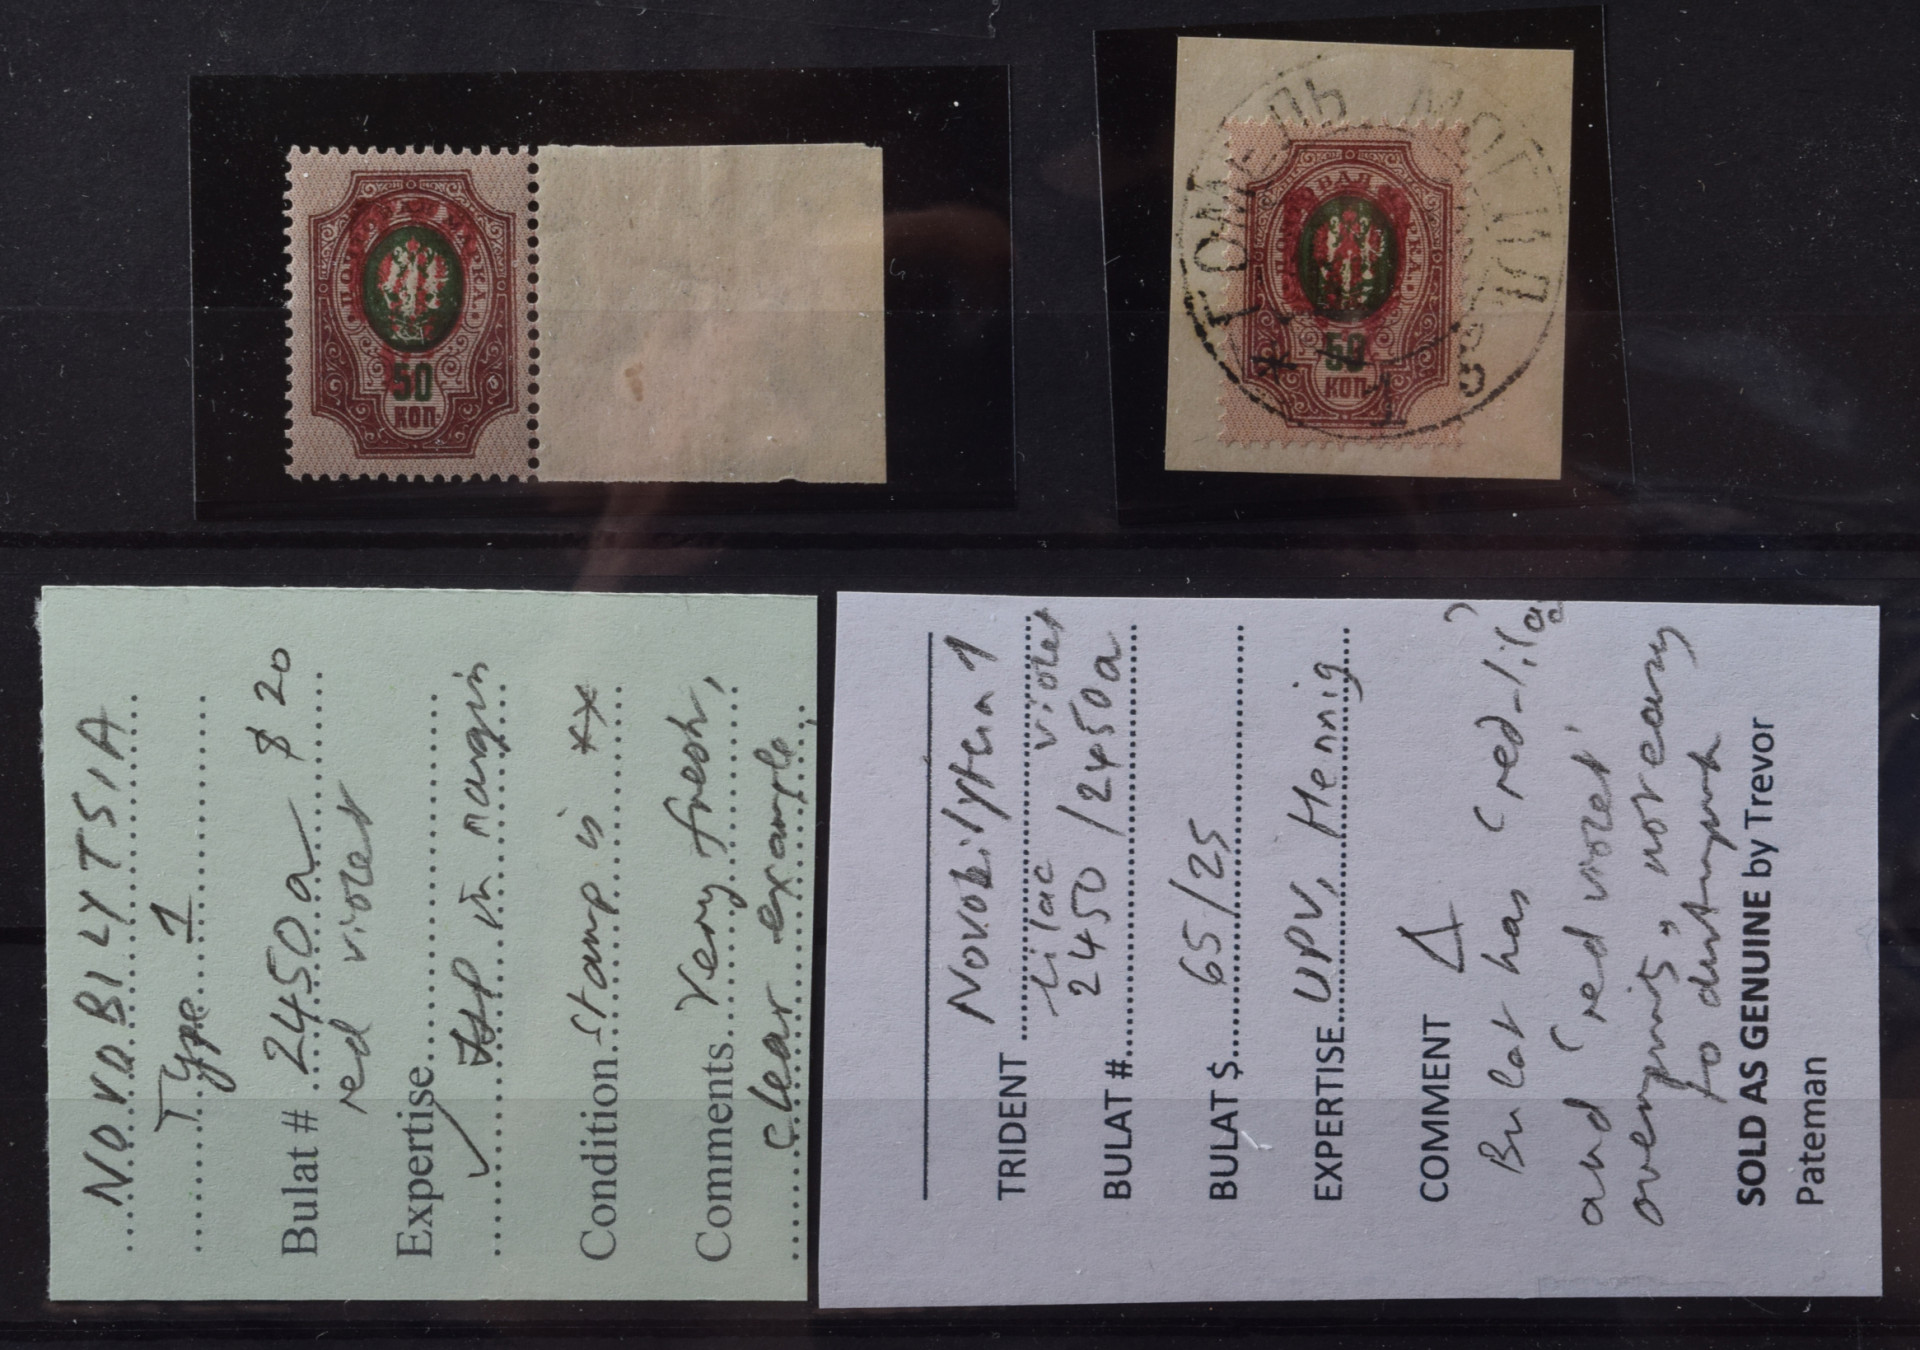 ПОЧТОВАЯ МАРКА
50
КОП.
ГОМЕЛЬ МОГИЛ
ПОЧТОВАЯ МАРКА
50
КОП.
NOVOBILYTSIA
Type 1
Bulat # 2450a $20
red violet
Expertise
in margin
Condition Stamp is **
Comments Very fresh,
clear example
TRIDENT Novobilytsia 1
lilac violet
BULAT # 2450/2450a
BULAT $ 65/25
EXPERTISE UPV, Hennig
COMMENT Δ
Bulat has 'red-lilac'
and 'red violet'
overprints, not easy
to distinguish
SOLD AS GENUINE by Trevor
Pateman